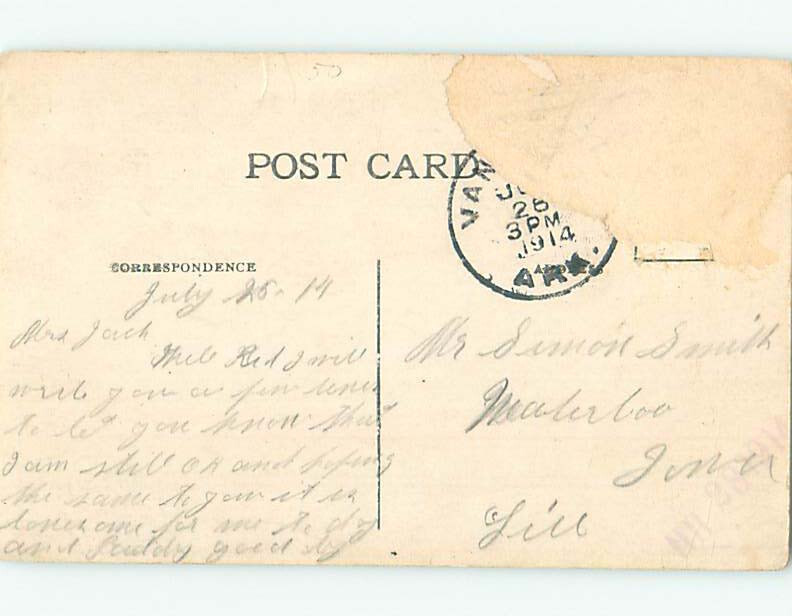 50
POST CARD
VAN
JU
26
3PM
1914
ARK.
CORRESPONDENCE
July 26 - 14
Mrs Jack
Well Red I will
write you a few lines
to let you know that
I am still OK and hoping
the same to you it is
lonesome for me to day
and Paddy good by
Mr Simon Smith
Waterloo
Iowa
Lill